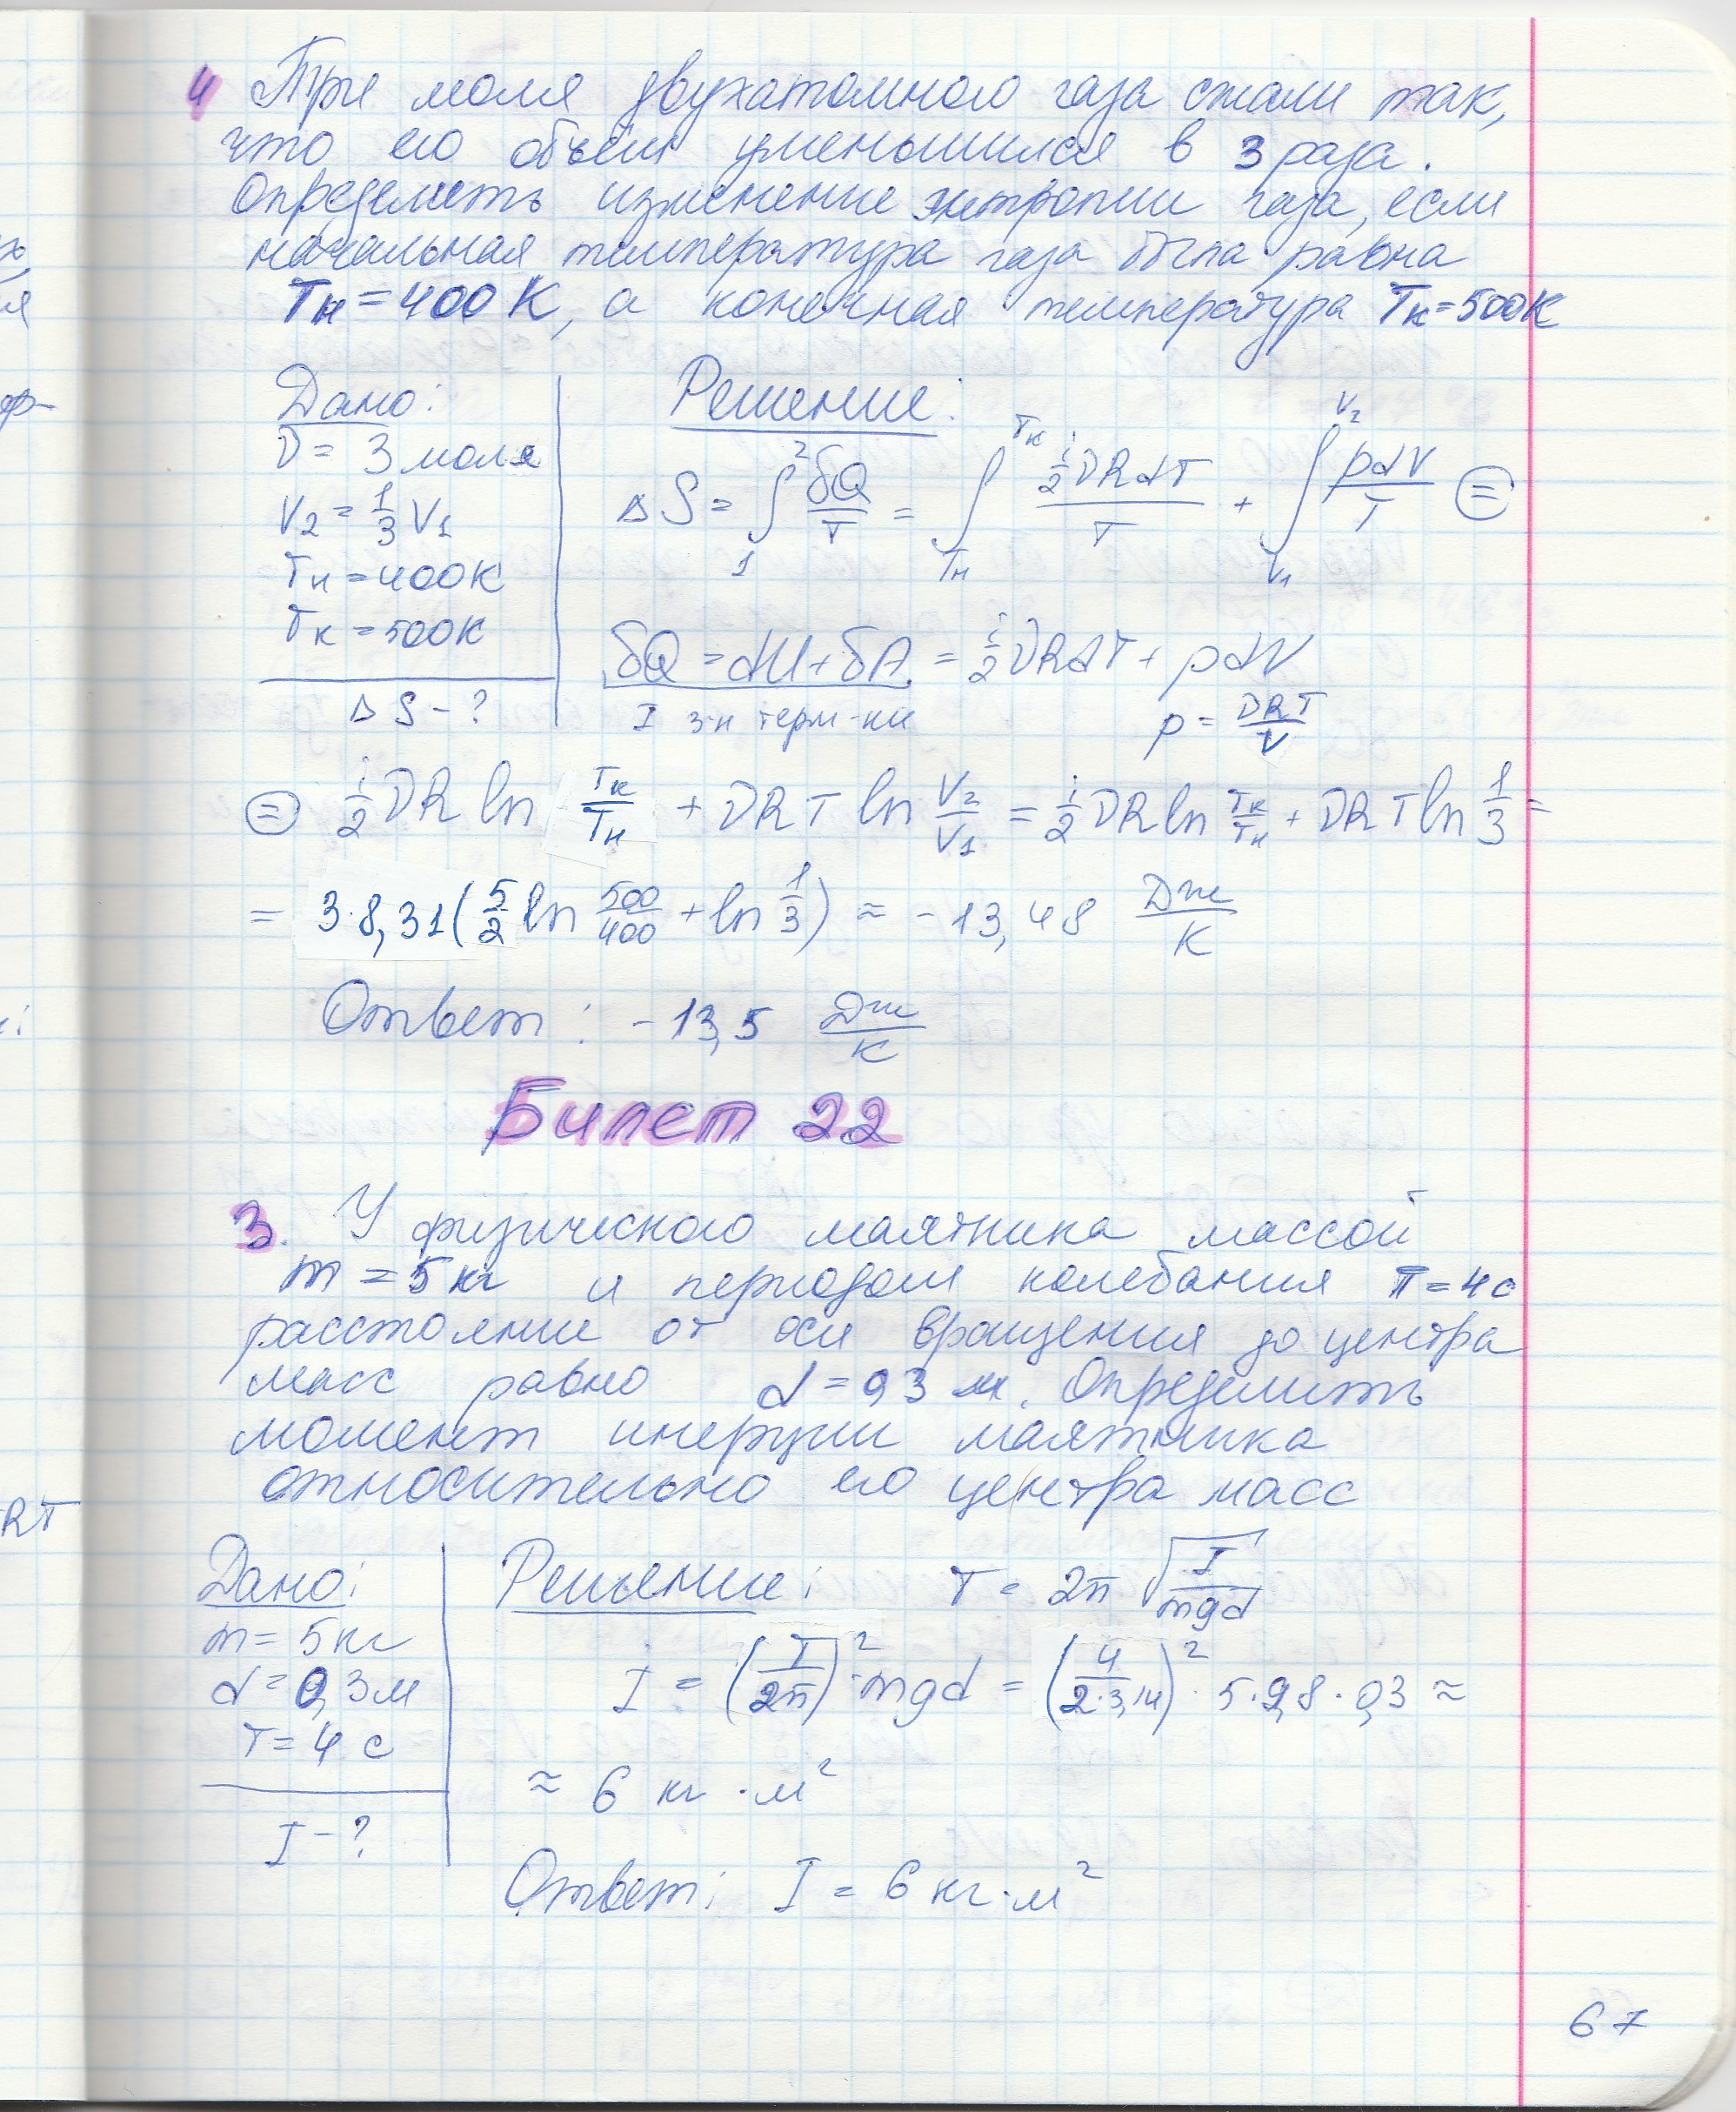 4 Три моля двухатомного газа сжали так,
что его объём уменьшился в 3 раза.
Определить изменение энтропии газа, если
начальная температура газа была равна
Tн = 400 К, а конечная температура Tк = 500К
Дано:
ν = 3 моля
V₂ = 1/3 V₁
Tн = 400К
Tк = 500К
ΔS - ?
Решение:
ΔS = ∫₁² δQ/T = ∫_Tн^Tк (i/2 νRdT)/T + ∫_V₁^V₂ pdV/T ⊜
δQ = dU + δA = i/2 νRdT + pdV
I з-н терм-ки p = νRT/V
⊜ i/2 νR ln Tк/Tн + νRT ln V₂/V₁ = i/2 νR ln Tк/Tн + νRT ln 1/3 =
= 3·8,31(5/2 ln 500/400 + ln 1/3) ≈ -13,48 Дж/К
Ответ: -13,5 Дж/К
Билет 22
3. У физического маятника массой
m = 5 кг и периодом колебания T = 4с
расстояние от оси вращения до центра
масс равно d = 0,3 м. Определить
момент инерции маятника
относительно его центра масс
Дано:
m = 5 кг
d = 0,3м
T = 4 с
I - ?
Решение: T = 2π √(I/mgd)
I = (T/2π)² · mgd = (4/2·3,14)² · 5·9,8·0,3 ≈
≈ 6 кг·м²
Ответ: I = 6 кг·м²
67
RT